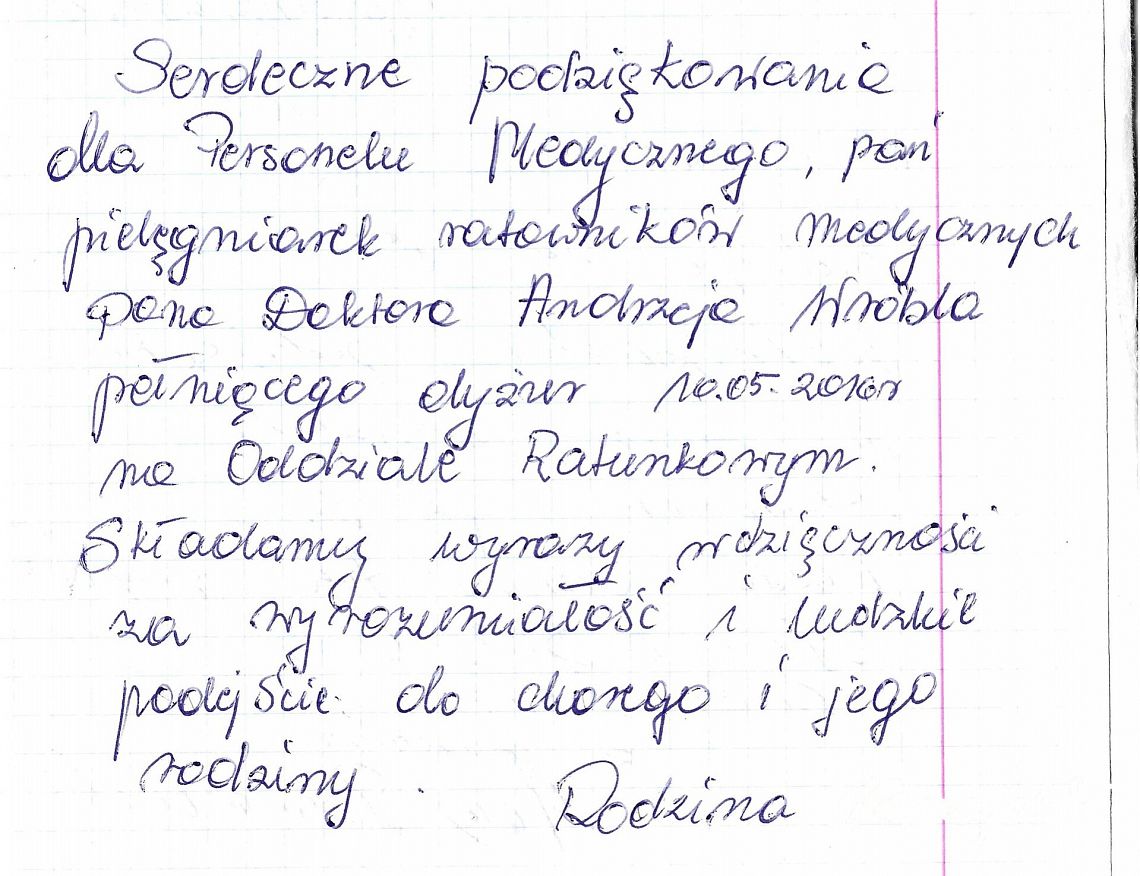 Serdeczne podziękowanie
dla Personelu Medycznego, pań
pielęgniarek ratowników medycznych
Pana Doktora Andrzeja Wróbla
pełniącego dyżur 10.05.2016r
na Oddziale Ratunkowym.
Składamy wyrazy wdzięczności
za wyrozumiałość i ludzkie
podejście do chorego i jego
rodziny.
Rodzina